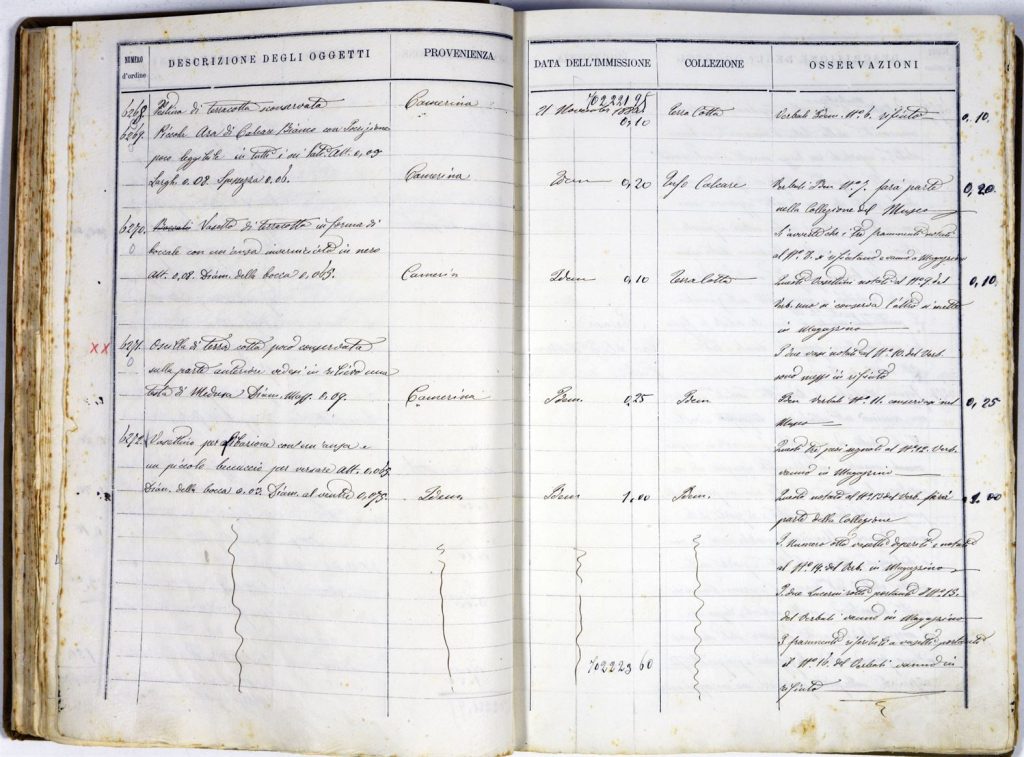 NUMERO d'ordine
DESCRIZIONE DEGLI OGGETTI
PROVENIENZA
DATA DELL'IMMISSIONE
COLLEZIONE
OSSERVAZIONI
6268
di terracotta conservata
Camerina
70222195
21 Novembre
0,10
Terra Cotta
Verbali Idem. Nº 6. rifiuto
0,10
6269
Piccola Ara di Calcare Bianco con Iscrizione
poco leggibile in tutti i lati. Alt. 0,09
Largh. 0.08. Spessezza 0,06.
Camerina
Idem
0,20
Tufo Calcare
Verbali Idem Nº 7. farà parte
0,20
nella Collezione del Museo
6270.
0
Boccali Vasetto di terracotta in forma di
boccale con un'ansa inverniciata in nero
Alt. 0,08. Diam. della bocca 0,065.
Camerin
Idem
0,10
Terra Cotta
S'avverte che i tre frammenti notati
al Nº 8. si rifiutano e vanno a Magazzino
Questi Vasettini notati al Nº 9 del
0,10
Verb. uno si conserva l'altro si mette
in Magazzino
XX
6271.
0
di terra cotta poco conservata
sulla parte anteriore vedesi in rilievo una
testa di Medusa. Diam. Mass. 0,09.
Camerina
Idem.
0,25
Idem
I due vasi notati al Nº 10. del Verb.
sono messi in rifiuto
Idem Verbal Nº 11. conservasi nel
0,25
Museo
6272.
Vasettino per libazione con un'ansa e
un piccolo beccuccio per versare Alt. 0,065
Diam. della bocca 0.03. Diam. al ventre 0,075.
Idem
Idem
1.00
Idem.
Questi tre segnati al Nº 12. Verb.
vanno in Magazzino
Questo notato al Nº 13 del Verb. farà
1.00
parte della Collezione
I Numero otto vasetti deperiti e notati
al Nº 14. del Verb. in Magazzino
I due Lucerni rotti portanti il Nº 15.
del Verbali vanno in Magazzino
3 frammenti riferibili a vasetti portanti
70222360
al Nº 16. del Verbali vanno in
rifiuto